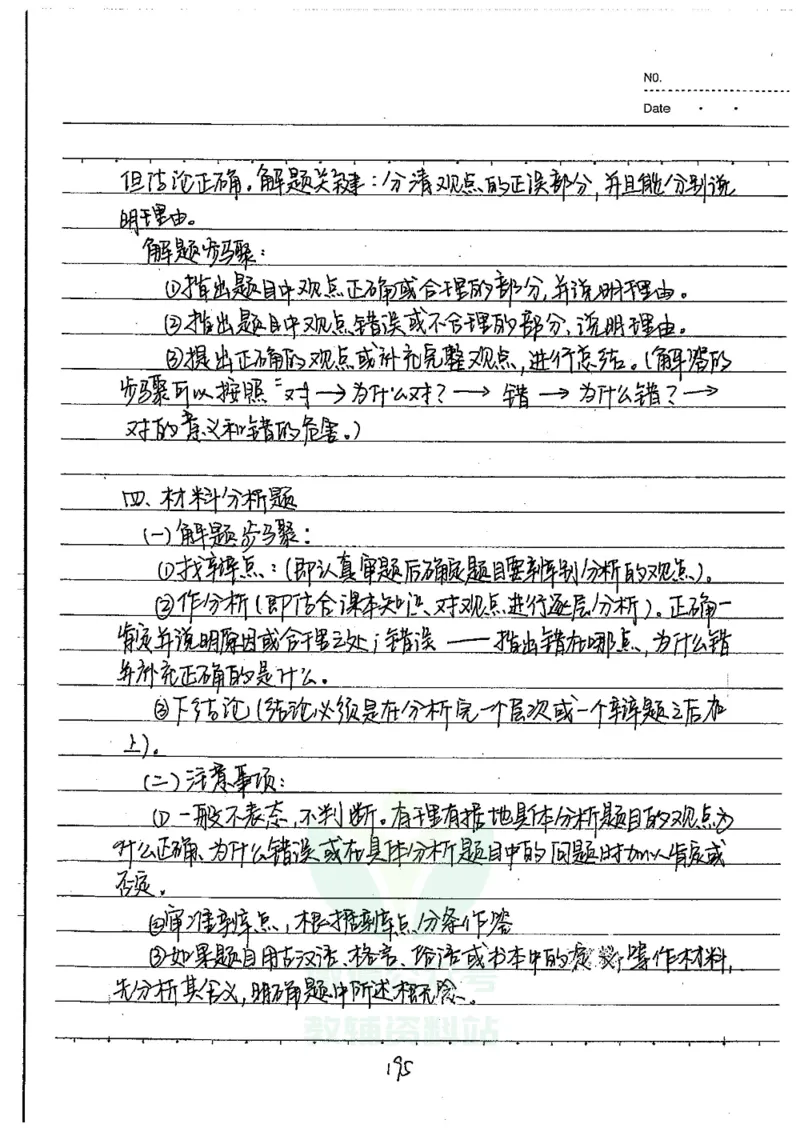 NO.
Date
但结论正确。解题关键:分清观点的正误部分,并且能分别说
明理由。
解题步骤:
①指出题目中观点正确或合理的部分,并说明理由。
②指出题目中观点错误或不合理的部分,说明理由。
③提出正确的观点或补充完整观点,进行总结。(解答的
步骤可以按照“对→为什么对?→错→为什么错?→
对的意义和错的危害。)
四、材料分析题
(一)解题步骤:
①找辨点:(即认真审题后确定题目要辨别分析的观点)。
②作分析(即结合课本知识,对观点进行逐层分析)。正确一
肯定并说明原因或合理之处;错误——指出错在哪点,为什么错
并补充正确的是什么。
③下结论(结论必须是在分析完一个层次或一个辩题之后加
上)。
(二)注意事项:
①一般不表态,不判断。有理有据地具体分析题目的观点为
什么正确、为什么错误或在具体分析题目中的问题时加以肯定或
否定。
②审准辨点,根据辨点分条作答
③如果题目用古汉语、格言、俗语或书本中的 等作材料,
先分析其含义,明确题中所述概念。
教辅资料站
195